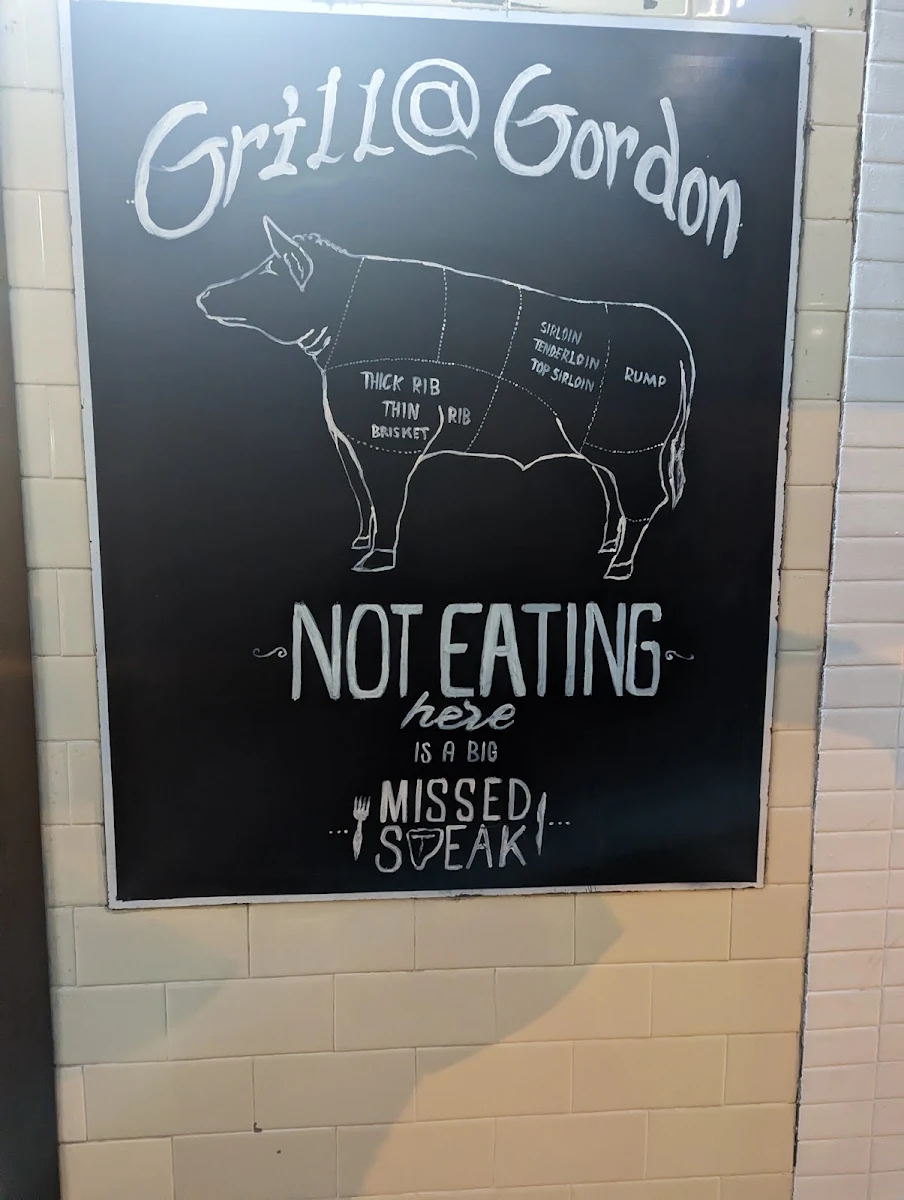 Grill@Gordon
THICK RIB
THIN RIB
BRISKET
SIRLOIN
TENDERLOIN
TOP SIRLOIN
RUMP
NOT EATING
here
IS A BIG
MISSED
STEAK